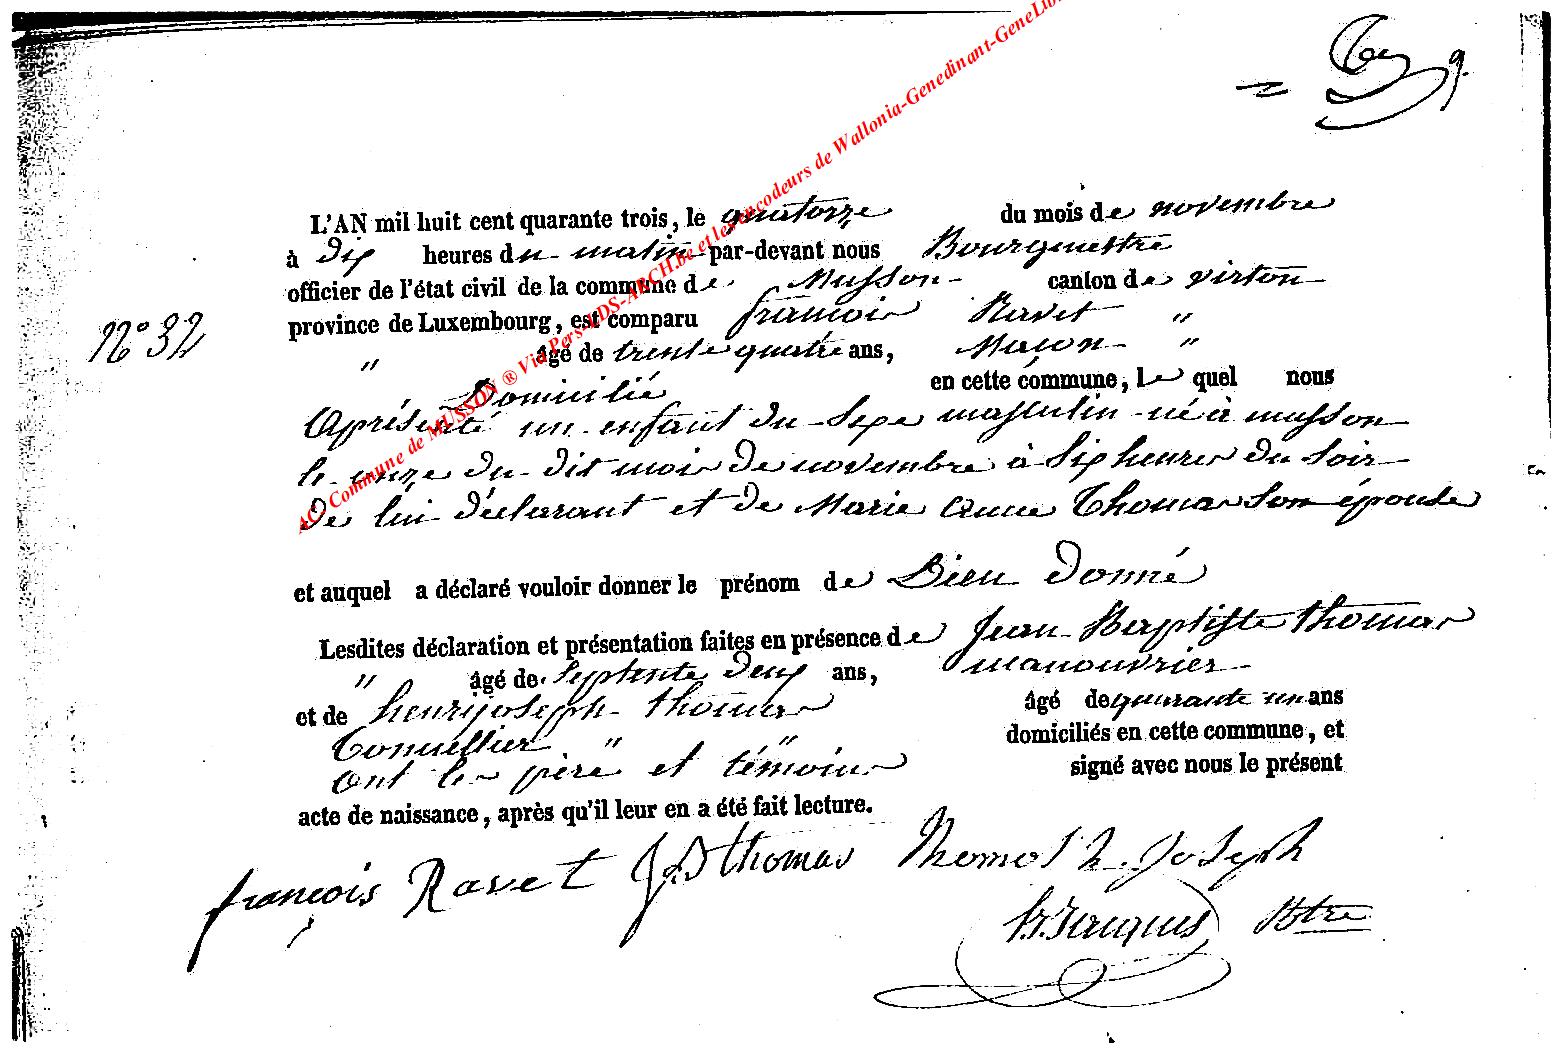 9.
L'AN mil huit cent quarante trois, le quatorze du mois de novembre
à dix heures du matin par-devant nous Bourgmestre
officier de l'état civil de la commune de Musson canton de virton
province de Luxembourg, est comparu françois Ravet "
N° 32
" âgé de trente quatre ans, Maçon "
Domicilié en cette commune, le quel nous
a présenté un enfant du sexe masculin né à musson
le onze du dit mois de novembre à six heures du soir
de lui déclarant et de Marie Anne Thomas son épouse
et auquel a déclaré vouloir donner le prénom de Dieu donné
Lesdites déclaration et présentation faites en présence de Jean Baptiste thomas
" âgé de septente deux ans, manouvrier
et de henry joseph thomas âgé de quarante un ans
Tonnellier " " domiciliés en cette commune, et
ont les père et témoins signé avec nous le présent
acte de naissance, après qu'il leur en a été fait lecture.
françois Ravet J.B thomas thomas h. joseph
Jacques Bstre
AC Commune de MUSSON ® Via Pers-LDS-ARCH.be et les encodeurs de Wallonia-Genedinant-GeneLib